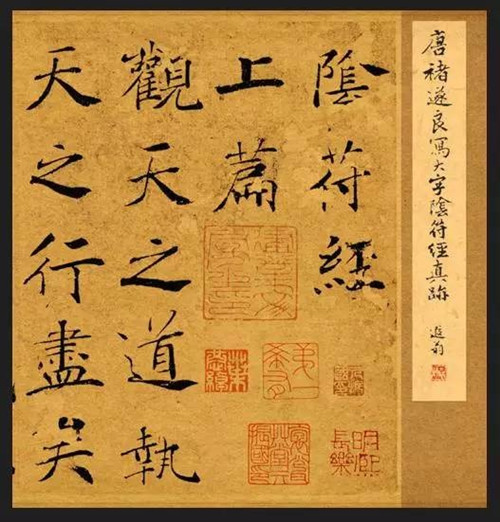 唐褚遂良寫大字陰符經真跡
陰符經
上篇
觀天之道執
天之行盡矣